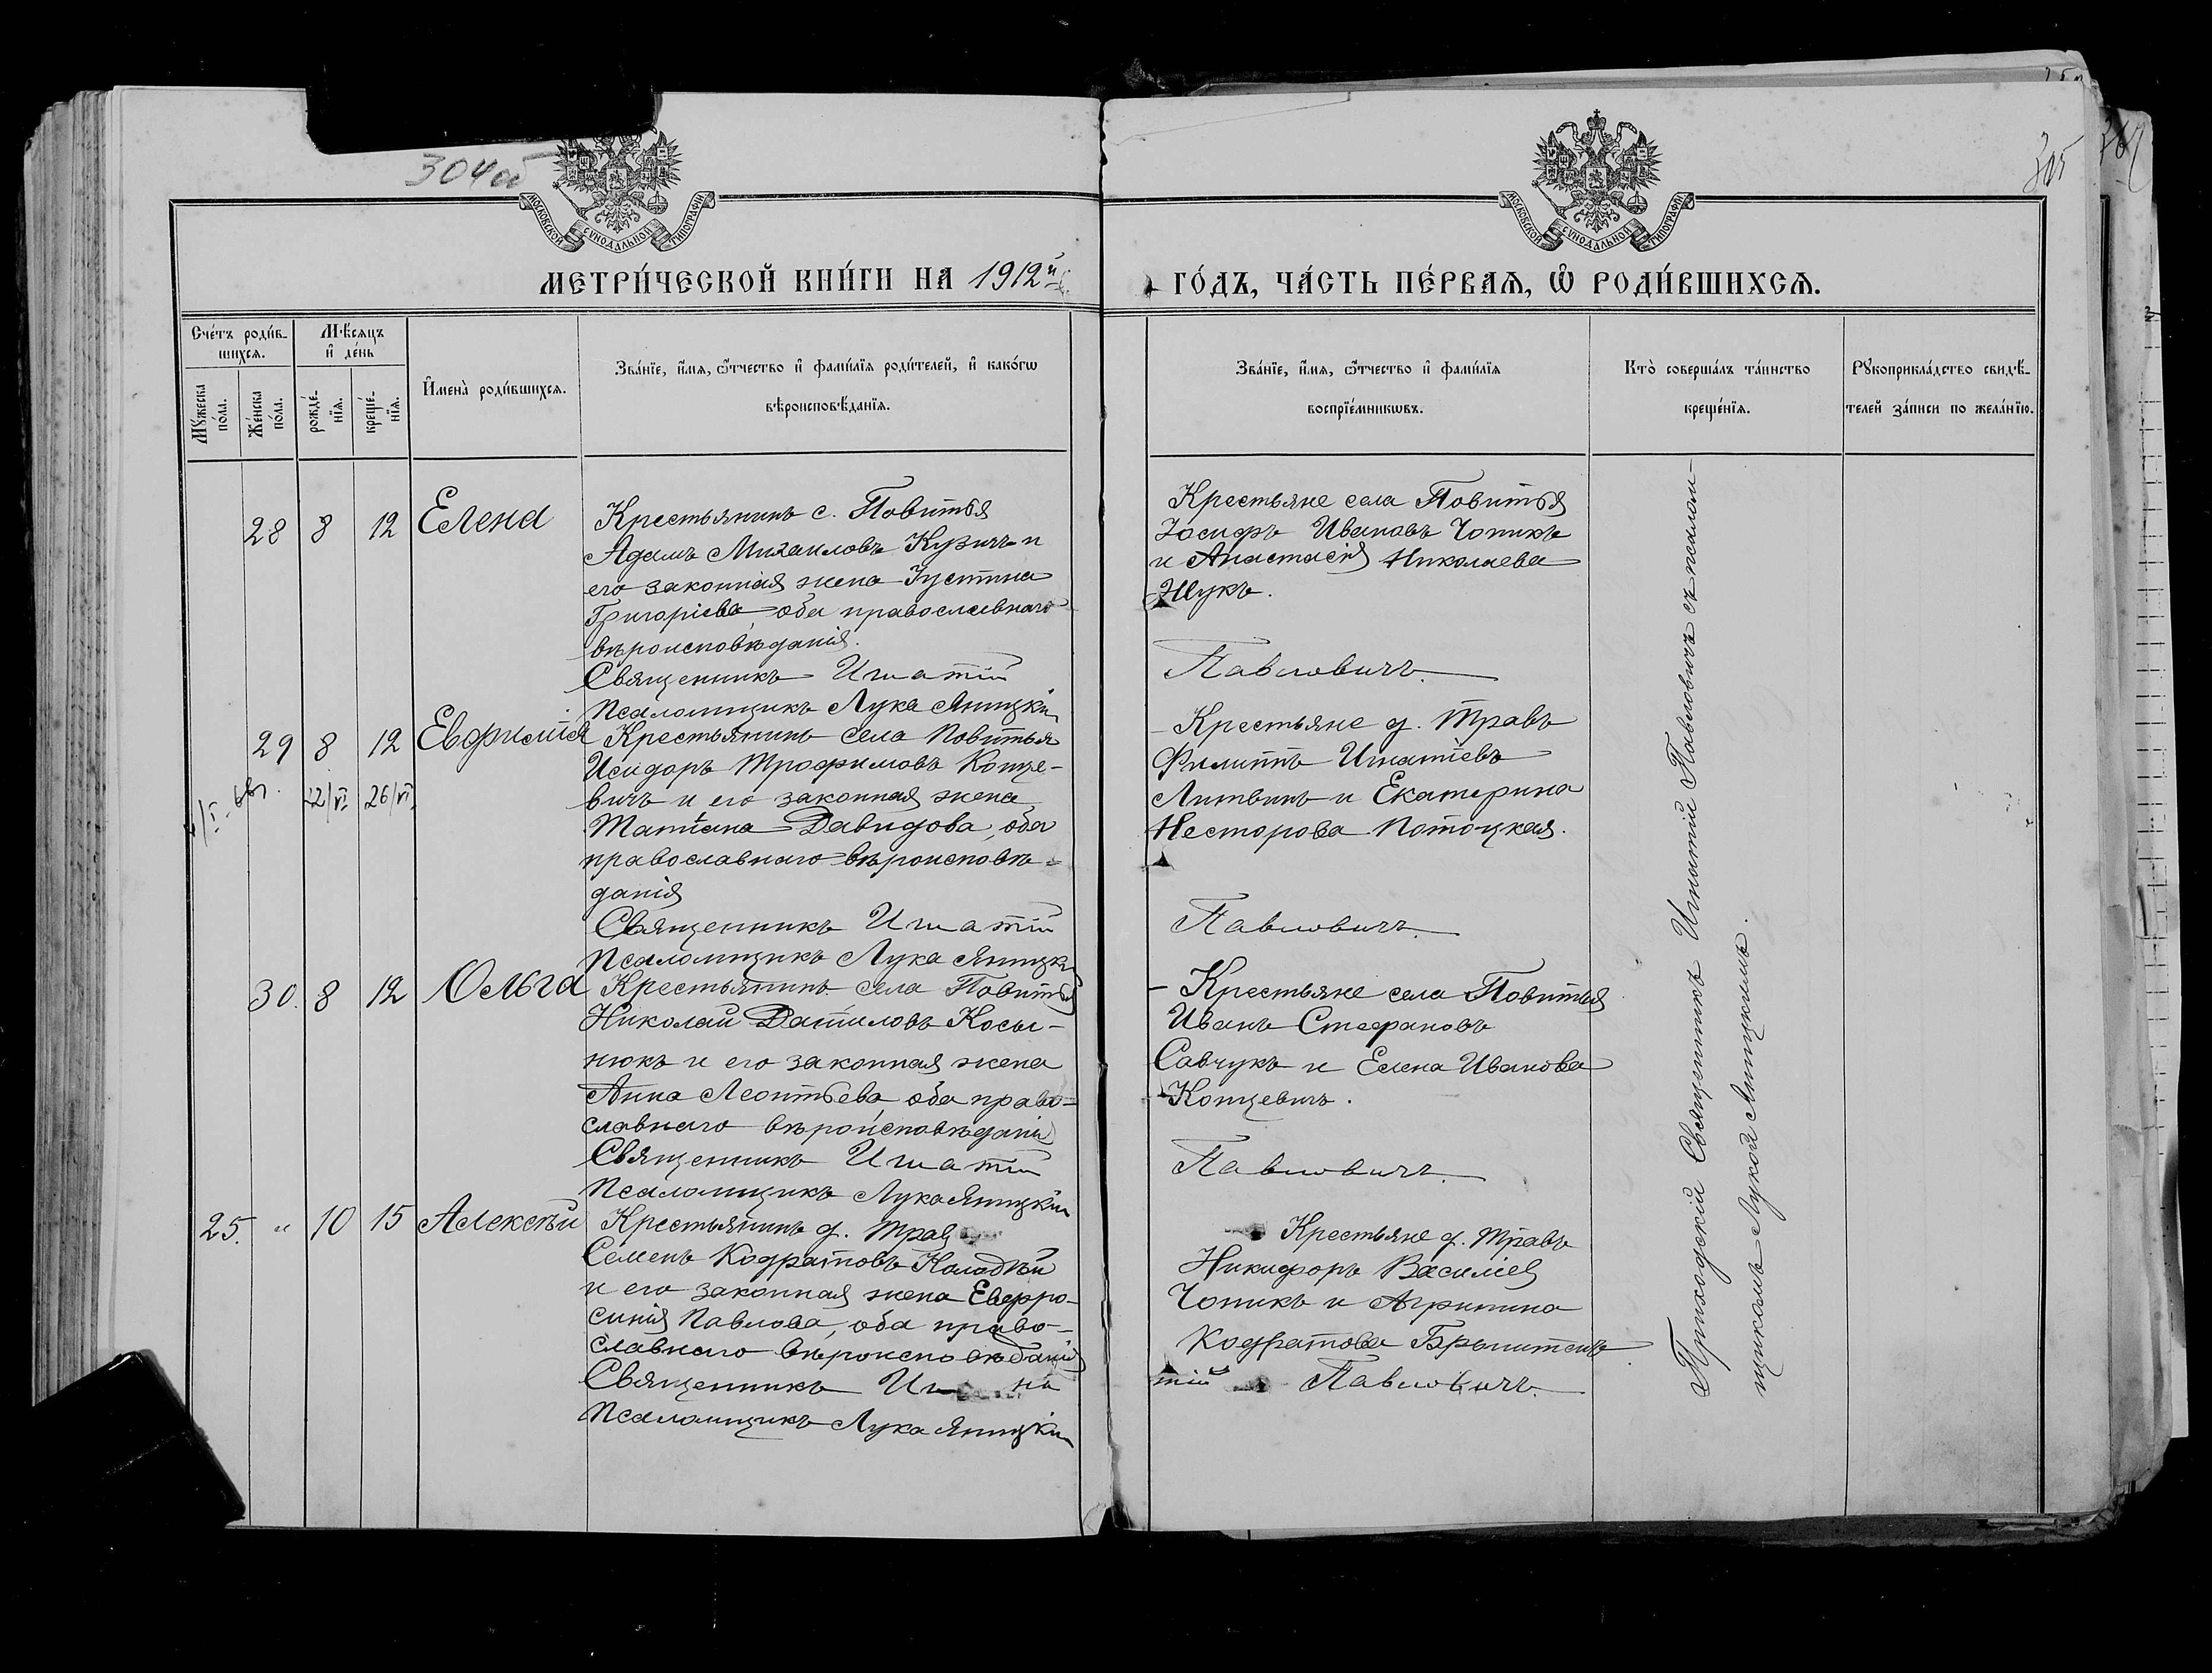 304об
305
МОСКОВСКОЙ СѴНОДАЛЬНОЙ ТИПОГРАФІИ
МОСКОВСКОЙ СѴНОДАЛЬНОЙ ТИПОГРАФІИ
МЕТРИ́ЧЕСКОЙ КНИ́ГИ НА 1912й
ГО́ДЪ, ЧА́СТЬ ПЕ́РВАѦ, Ѽ РОДИ́ВШИХСѦ.
Сче́тъ роди́в-
шихсѧ.
Мѣ́сѧцъ
и҆ де́нь
Мꙋ́жеска
по́ла.
Же́нска
по́ла.
рожде́-
нїѧ.
креще́-
нїѧ.
И҆мена̀ роди́вшихсѧ.
Зва́нїе, и҆́мѧ, ѻ҆́тчество и҆ фами́лїѧ роди́телей, и҆ како́гѡ
вѣроисповѣ́данїѧ.
Зва́нїе, и҆́мѧ, ѻ҆́тчество и҆ фами́лїѧ
воспрїе́мникѡвъ.
Кто̀ соверша́лъ та́инство
креще́нїѧ.
Рꙋкоприкла́дство свидѣ́-
телей за́писи по жела́нїю.
28 8 12 Елена
Крестьянинъ с. Повитья
Адамъ Михаиловъ Кузичъ и
его законная жена Іустина
Григоріева, оба православнаго
вѣроисповѣданія.
Священникъ Игнатій
Псаломщикъ Лука Яницкій
Крестьяне села Повитья
Іосифъ Ивановъ Чопикъ
и Анастасія Николаева
Жукъ.
Павловичъ.
29 8 12 Евфимія
22/VI 26/VI
Крестьянинъ села Повитья
Исидоръ Трофимовъ Конце-
вичъ и его законная жена
Татіана Давидова, оба
православнаго вѣроисповѣ-
данія
Священникъ Игнатій
Псаломщикъ Лука Яницкій
Крестьяне д. Травъ
Филиппъ Игнатіевъ
Литвинъ и Екатерина
Несторова Потоцкая.
Павловичъ.
30. 8 12 Ольга
Крестьянинъ села Повитья
Николай Даниловъ Косы-
нюкъ и его законная жена
Анна Леонтьева, оба право-
славнаго вѣроисповѣданія
Священникъ Игнатій
Псаломщикъ Лука Яницкій
Крестьяне села Повитья
Иванъ Стефановъ
Савчукъ и Елена Иванова
Концевичъ.
Павловичъ.
25. " 10 15 Алексѣй
Крестьянинъ д. Травъ
Семенъ Кодратовъ Колодѣй
и его законная жена Евфро-
синія Павлова, оба право-
славнаго вѣроисповѣданія
Священникъ Игна
Псаломщикъ Лука Яницкій
Крестьяне д. Травъ
Никифоръ Василіев
Чопикъ и Агрипина
Кодратова
тій Павловичъ.
Приходскій Священникъ Игнатій Павловичъ съ псалом-
щикомъ Лукой Яницкимъ.